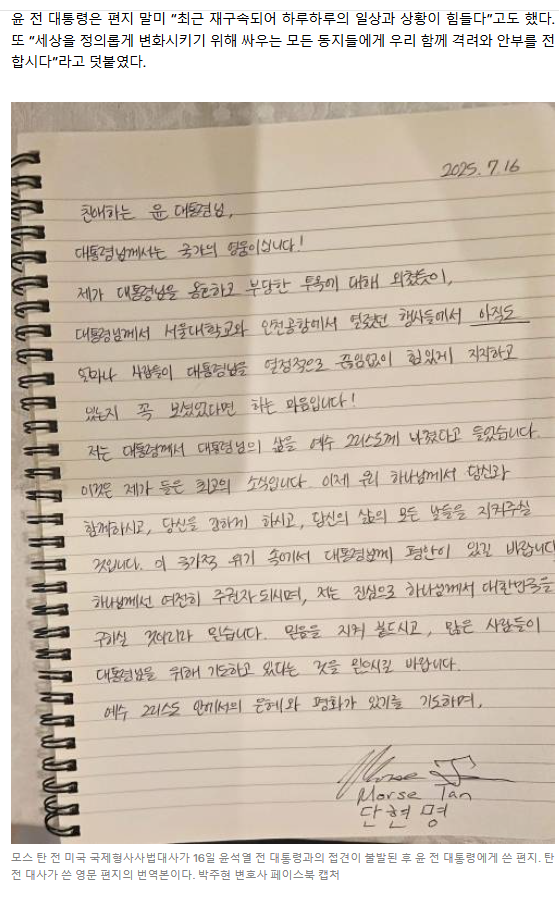 윤 전 대통령은 편지 말미 ”최근 재구속되어 하루하루의 일상과 상황이 힘들다“고도 했다.
또 ”세상을 정의롭게 변화시키기 위해 싸우는 모든 동지들에게 우리 함께 격려와 안부를 전
합시다”라고 덧붙였다.
2025. 7. 16
친애하는 윤 대통령님,
대통령님께서는 국가의 영웅이십니다!
제가 대통령님을 옹호하고 부당한 투옥에 대해 외쳤듯이,
대통령님께서 서울대학교와 인천공항에서 열렸던 행사들에서 아직도
얼마나 사람들이 대통령님을 열정적으로 끊임없이 힘있게 지지하고
있는지 꼭 보셨었다면 하는 마음입니다!
저는 대통령께서 대통령님의 삶을 예수 그리스도께 바쳤다고 들었습니다.
이것은 제가 들은 최고의 소식입니다. 이제 우리 하나님께서 당신과
함께하시고, 당신을 강하게 하시고, 당신의 삶의 모든 날들을 지켜주실
것입니다. 이 국가적 위기 속에서 대통령님께 평안이 있길 바랍니다
하나님께선 여전히 주권자 되시며, 저는 진심으로 하나님께서 대한민국을
구하실 것이리라 믿습니다. 믿음을 지켜 붙드시고, 많은 사람들이
대통령님을 위해 기도하고 있다는 것을 믿으시길 바랍니다.
예수 그리스도 안에서의 은혜와 평화가 있기를 기도하며,
Morse Tan
단현명
모스 탄 전 미국 국제형사사법대사가 16일 윤석열 전 대통령과의 접견이 불발된 후 윤 전 대통령에게 쓴 편지. 탄
전 대사가 쓴 영문 편지의 번역본이다. 박주현 변호사 페이스북 캡처